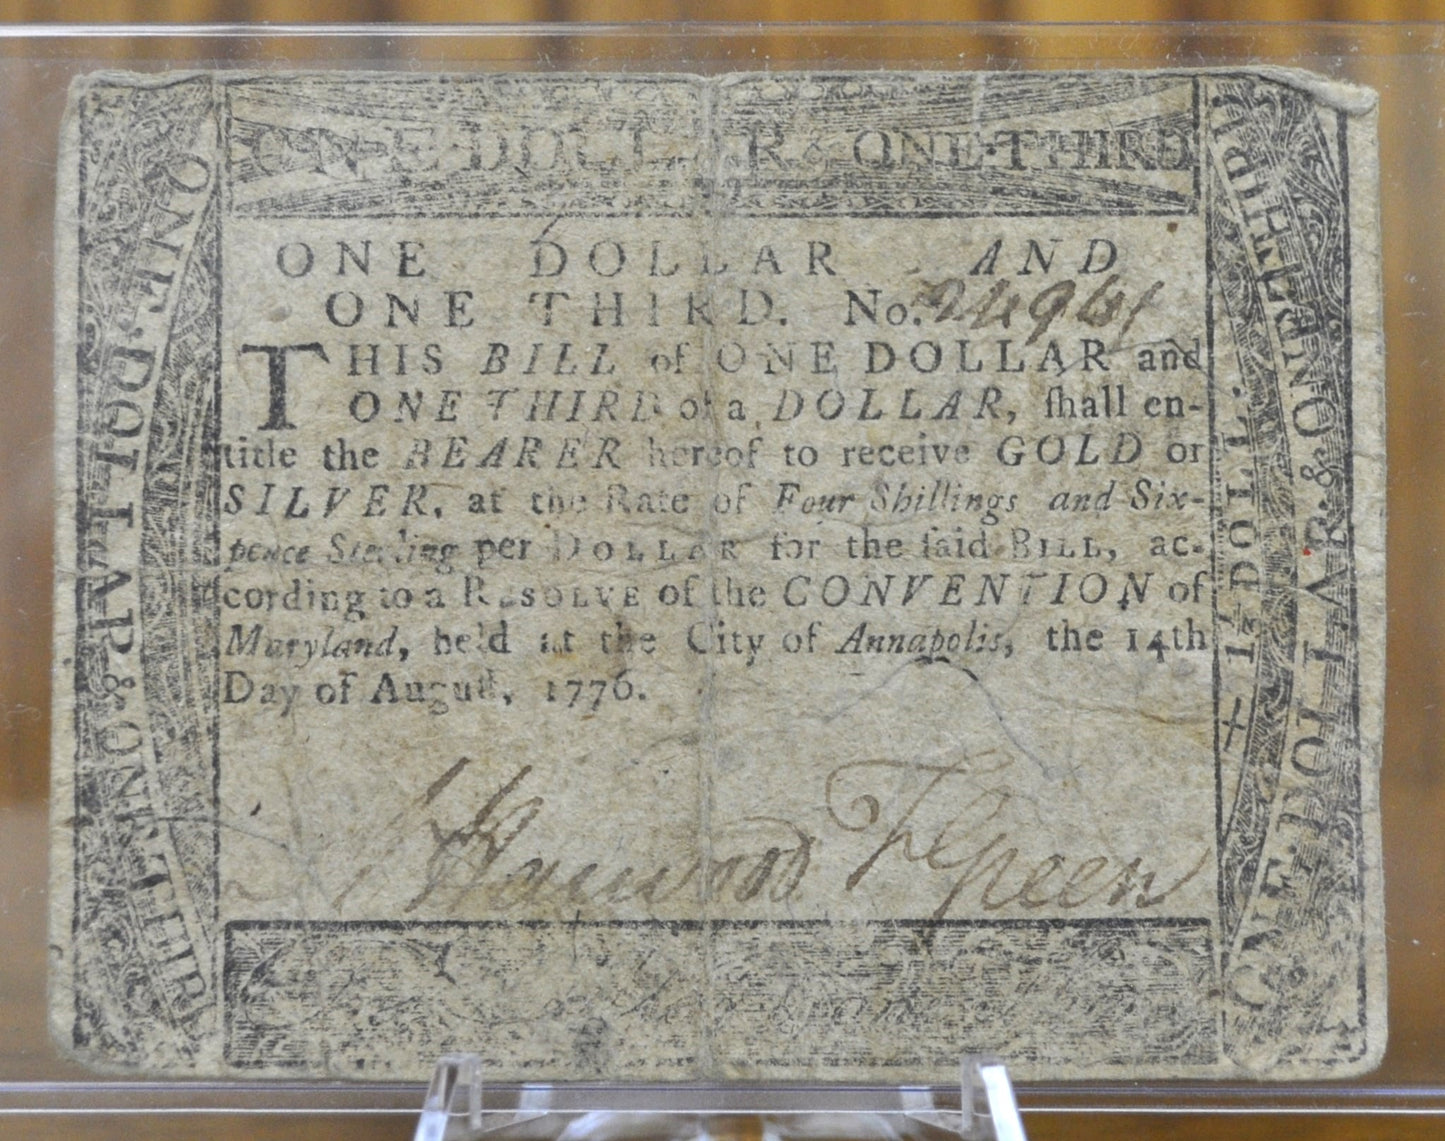 ONE DOLLAR & ONE THIRD
ONE DOLLAR AND
ONE THIRD. No. 24941
THIS BILL of ONE DOLLAR and
ONE THIRD of a DOLLAR, ſhall en-
title the BEARER hereof to receive GOLD or
SILVER, at the Rate of Four Shillings and Six-
pence Sterling per DOLLAR for the ſaid BILL, ac-
cording to a RESOLVE of the CONVENTION of
Maryland, held at the City of Annapolis, the 14th
Day of Auguſt, 1776.
Harwood F Green
ONE·DOLLAR·&·ONE·THIRD
ONE·DOLLAR·&·ONE·THIRD
1⅓ DOLL.